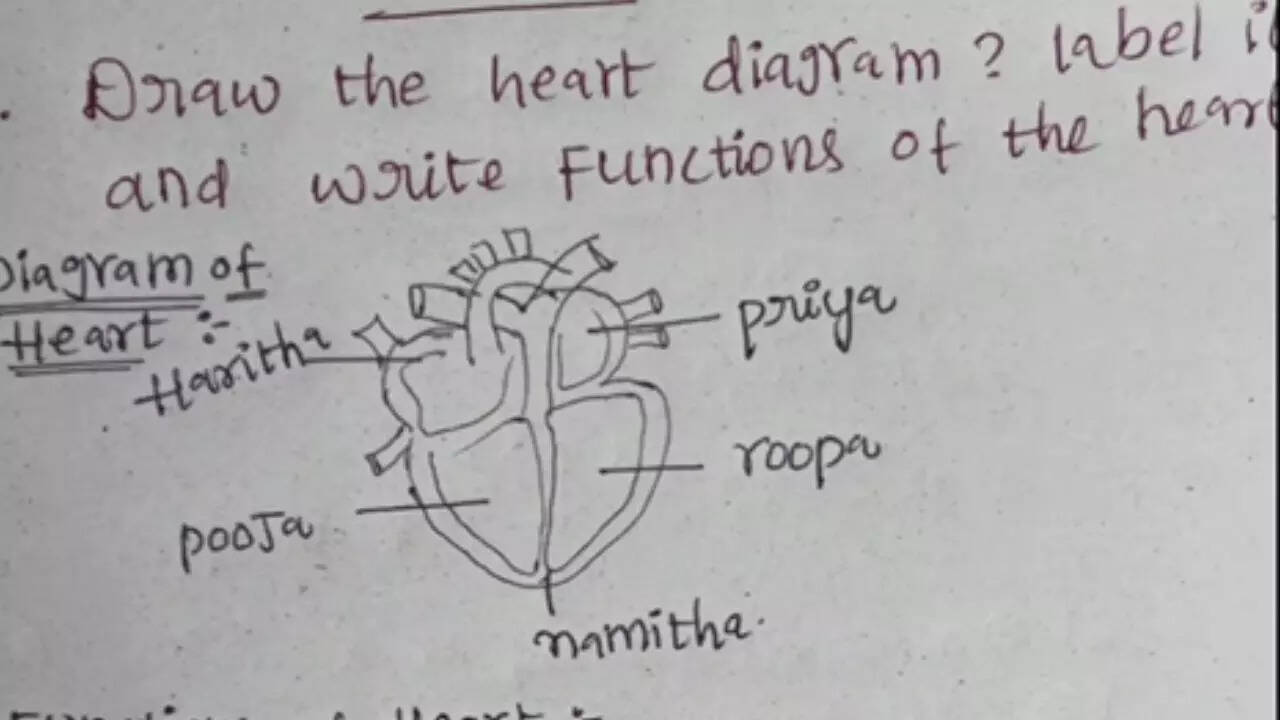 Draw the heart diagram ? label
and write Functions of the heart
Diagram of
Heart :-
Haritha
priya
roopa
pooja
namitha.
Heart :-